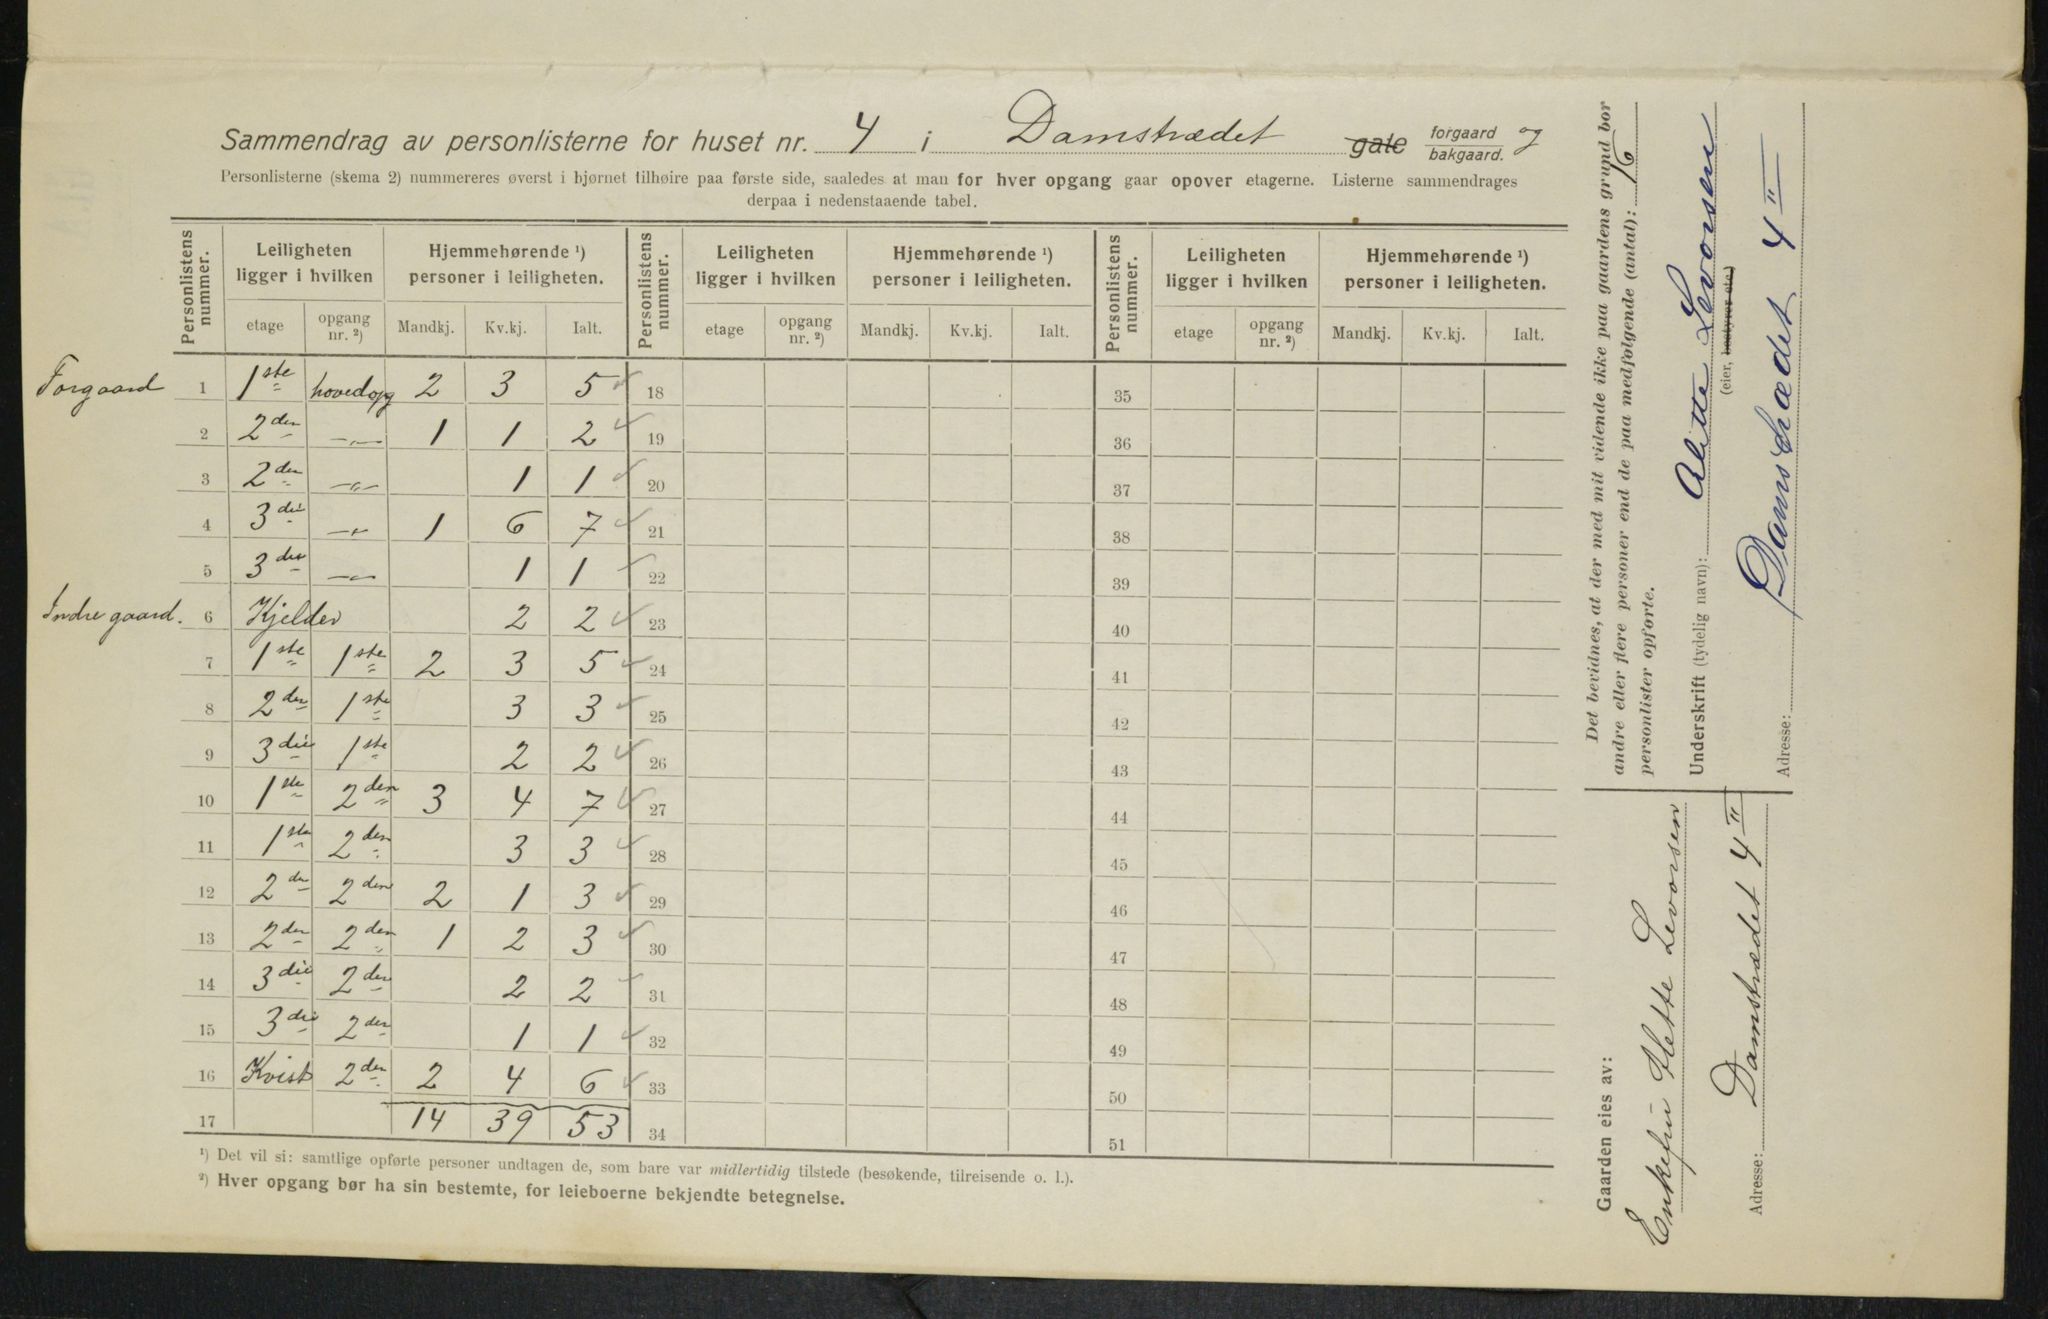 Sammendrag av personlisterne for huset nr. 4 i Damstrædet gate forgaard og bakgaard.
Personlisterne (skema 2) nummereres øverst i hjørnet tilhøire paa første side, saaledes at man for hver opgang gaar opover etagerne. Listerne sammendrages
derpaa i nedenstaaende tabel.
Personlistens nummer. Leiligheten ligger i hvilken Hjemmehørende ¹) personer i leiligheten. Personlistens nummer. Leiligheten ligger i hvilken Hjemmehørende ¹) personer i leiligheten. Personlistens nummer. Leiligheten ligger i hvilken Hjemmehørende ¹) personer i leiligheten.
etage opgang nr. ²) Mandkj. Kv.kj. Ialt. etage opgang nr. ²) Mandkj. Kv.kj. Ialt. etage opgang nr. ²) Mandkj. Kv.kj. Ialt.
Forgaard 1 1ste hovedopg 2 3 5 18 35
2 2den —„— 1 1 2 19 36
3 2den —„— 1 1 20 37
4 3die —„— 1 6 7 21 38
5 3die —„— 1 1 22 39
Indre gaard. 6 Kjelder 2 2 23 40
7 1ste 1ste 2 3 5 24 41
8 2den 1ste 3 3 25 42
9 3die 1ste 2 2 26 43
10 1ste 2den 3 4 7 27 44
11 1ste 2den 3 3 28 45
12 2den 2den 2 1 3 29 46
13 2den 2den 1 2 3 30 47
14 3die 2den 2 2 31 48
15 3die 2den 1 1 32 49
16 Kvist 2den 2 4 6 33 50
17 14 39 53 34 51
¹) Det vil si: samtlige opførte personer undtagen de, som bare var midlertidig tilstede (besøkende, tilreisende o. l.).
²) Hver opgang bør ha sin bestemte, for leieboerne bekjendte betegnelse.
Det bevidnes, at der med mit vidende ikke paa gaardens grund bor
andre eller flere personer end de paa medfølgende (antal): 16
personlister opførte.
Underskrift (tydelig navn): Alette Levorsen
(eier, bestyrer etc.)
Adresse: Damstrædet 4 II
Gaarden eies av:
Enkefru Alette Levorsen
Adresse: Damstrædet 4 II